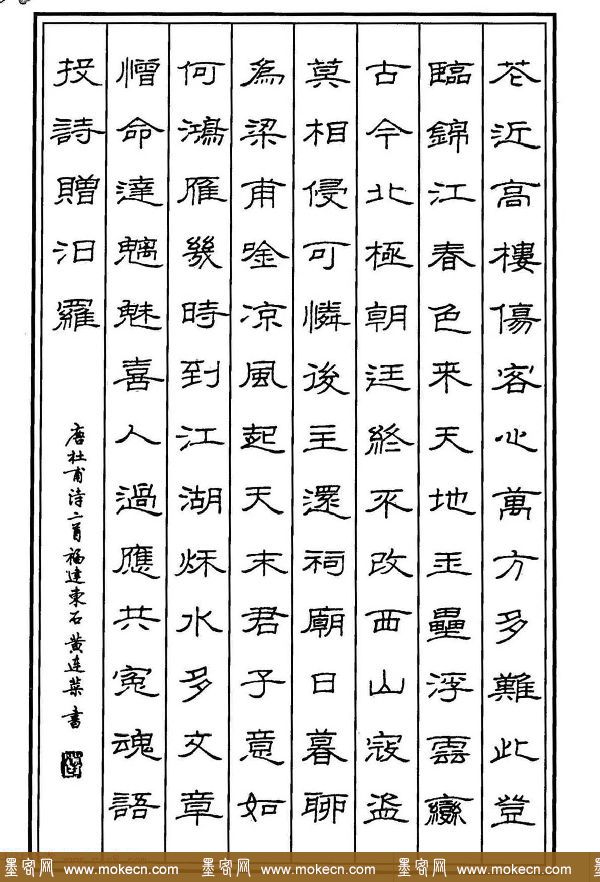 花近高樓傷客心萬方多難此登
臨錦江春色来天地玉壘浮雲變
古今北極朝廷終不改西山寇盗
莫相侵可憐後主還祠廟日暮聊
為梁甫唫凉風起天末君子意如
何鴻雁幾時到江湖秋水多文章
憎命達魑魅喜人過應共冤魂語
投詩贈汨羅
唐杜甫诗二首福建東石黄连葉書
墨客网 www.mokecn.com 墨客网 www.mokecn.com 墨客网 www.mokecn.com